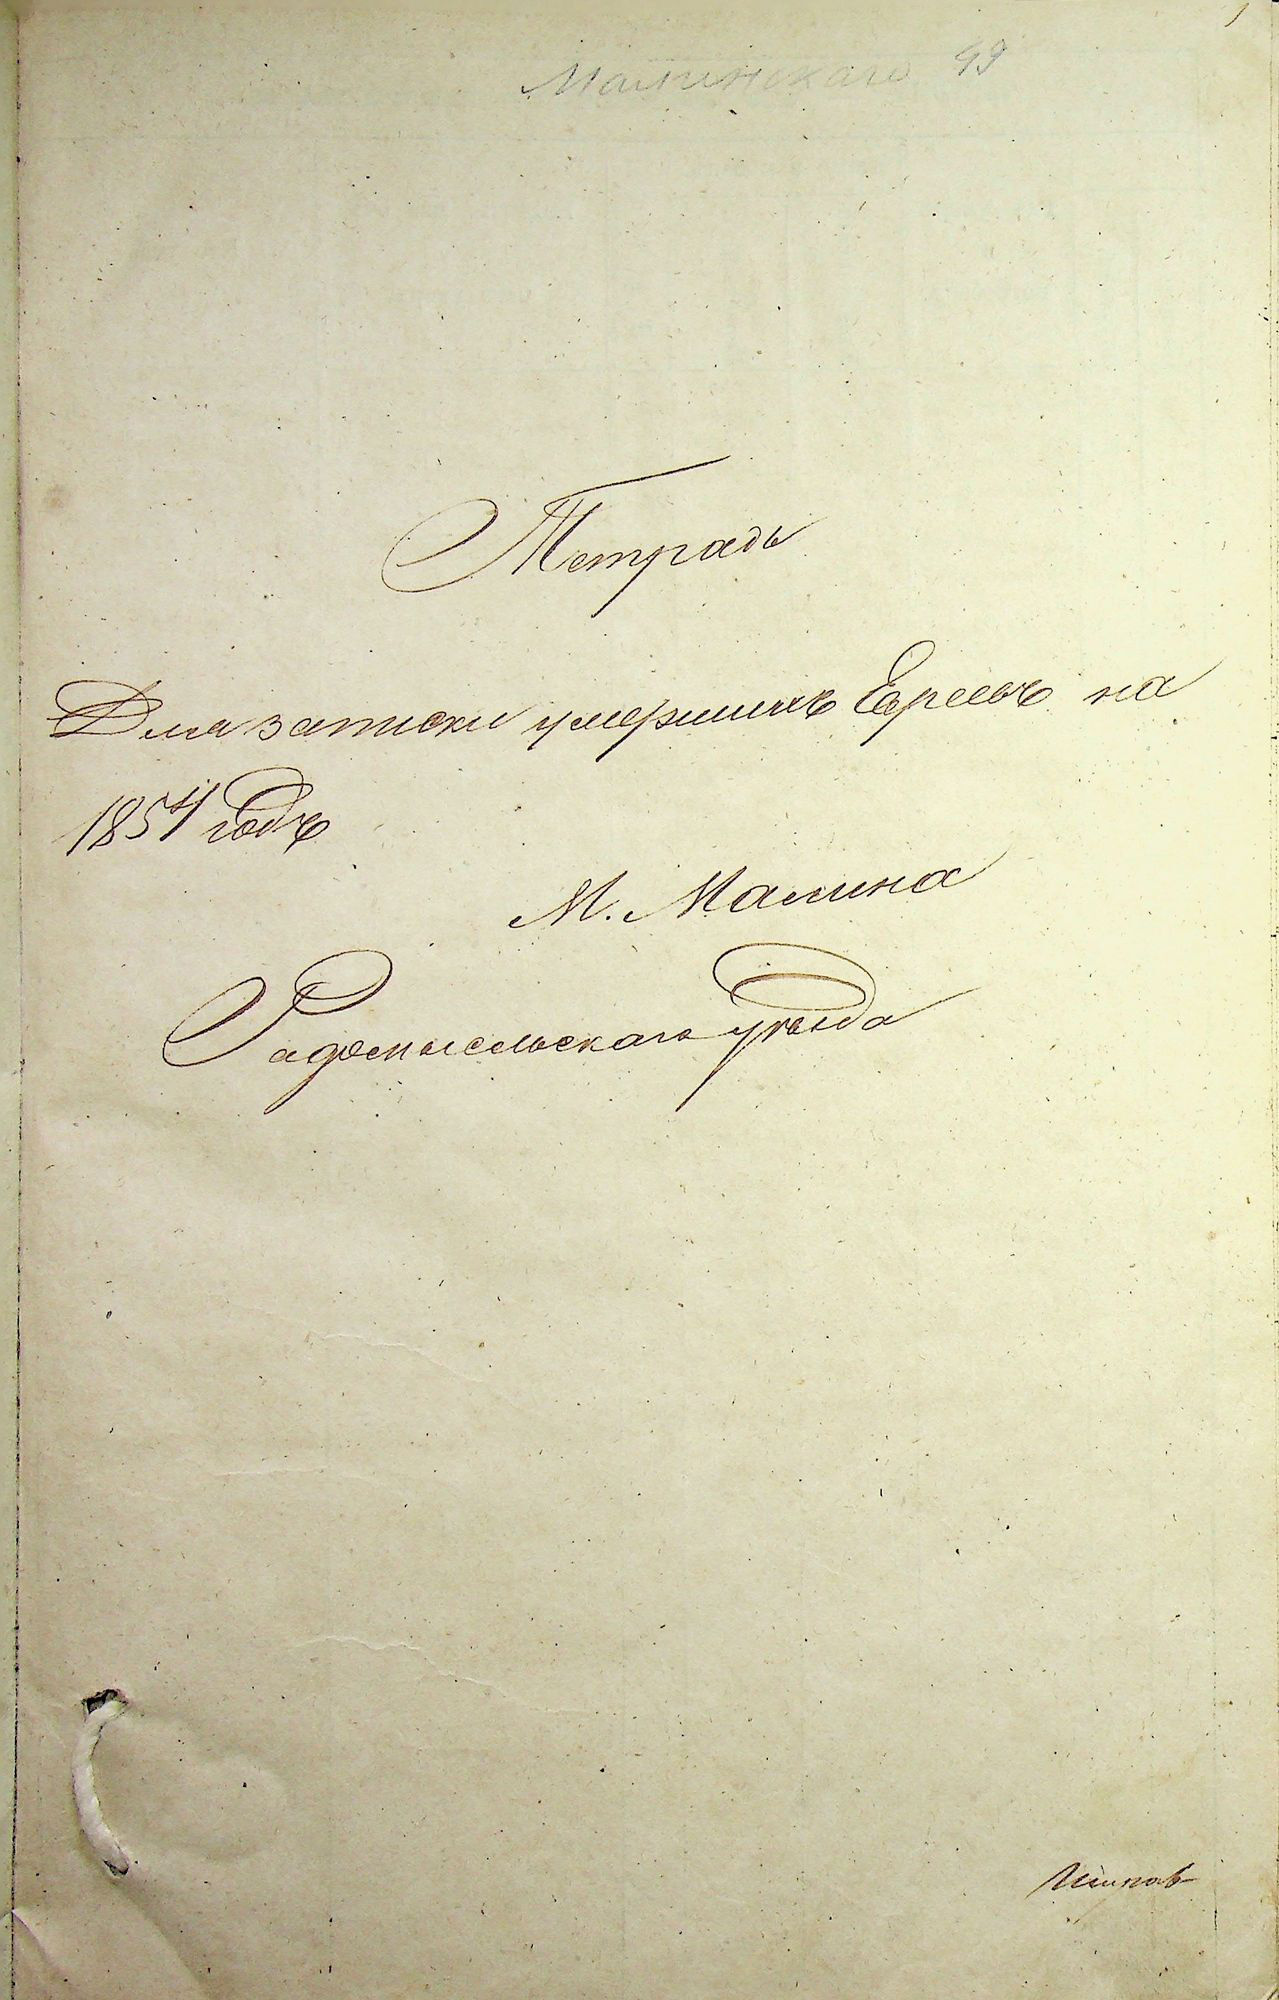 1
Малинскаго 49
Тетрадь
Для записки умершихъ Евреевъ на
1854 годъ
М. Малина
Радомысельскаго уѣзда